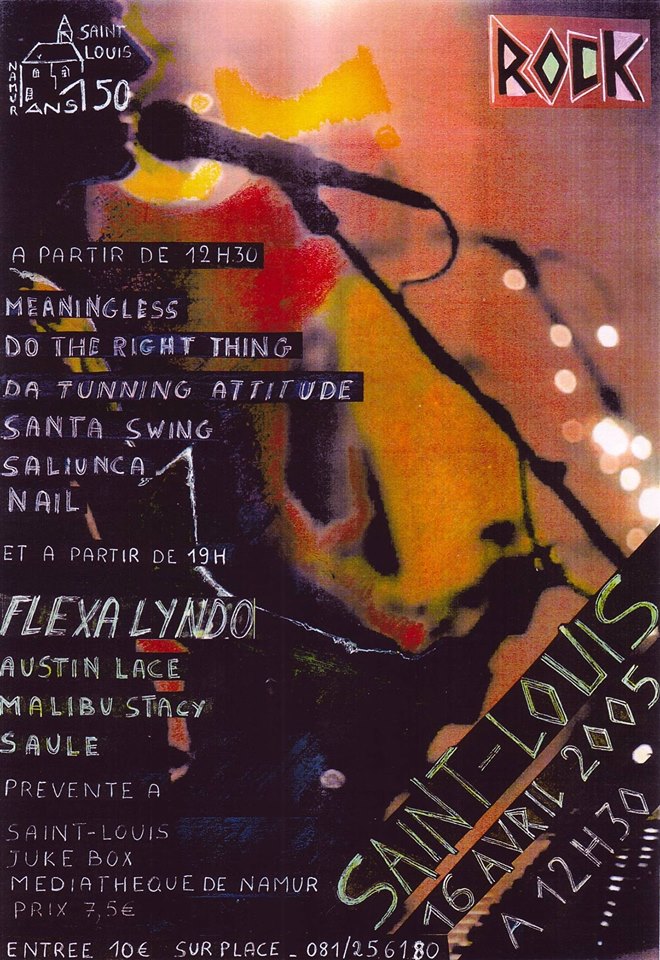 SAINT
LOUIS
NAMUR
150
ANS
ROCK
A PARTIR DE 12H30
MEANINGLESS
DO THE RIGHT THING
DA TUNNING ATTITUDE
SANTA SWING
SALIUNCA
NAIL
ET A PARTIR DE 19H
FLEXA LYNDO
AUSTIN LACE
MALIBU STACY
SAULE
PREVENTE A
SAINT-LOUIS
JUKE BOX
MEDIATHEQUE DE NAMUR
PRIX 7,5€
ENTREE 10€ SUR PLACE - 081/256180
SAINT-LOUIS
16 AVRIL 2005
A 12H30